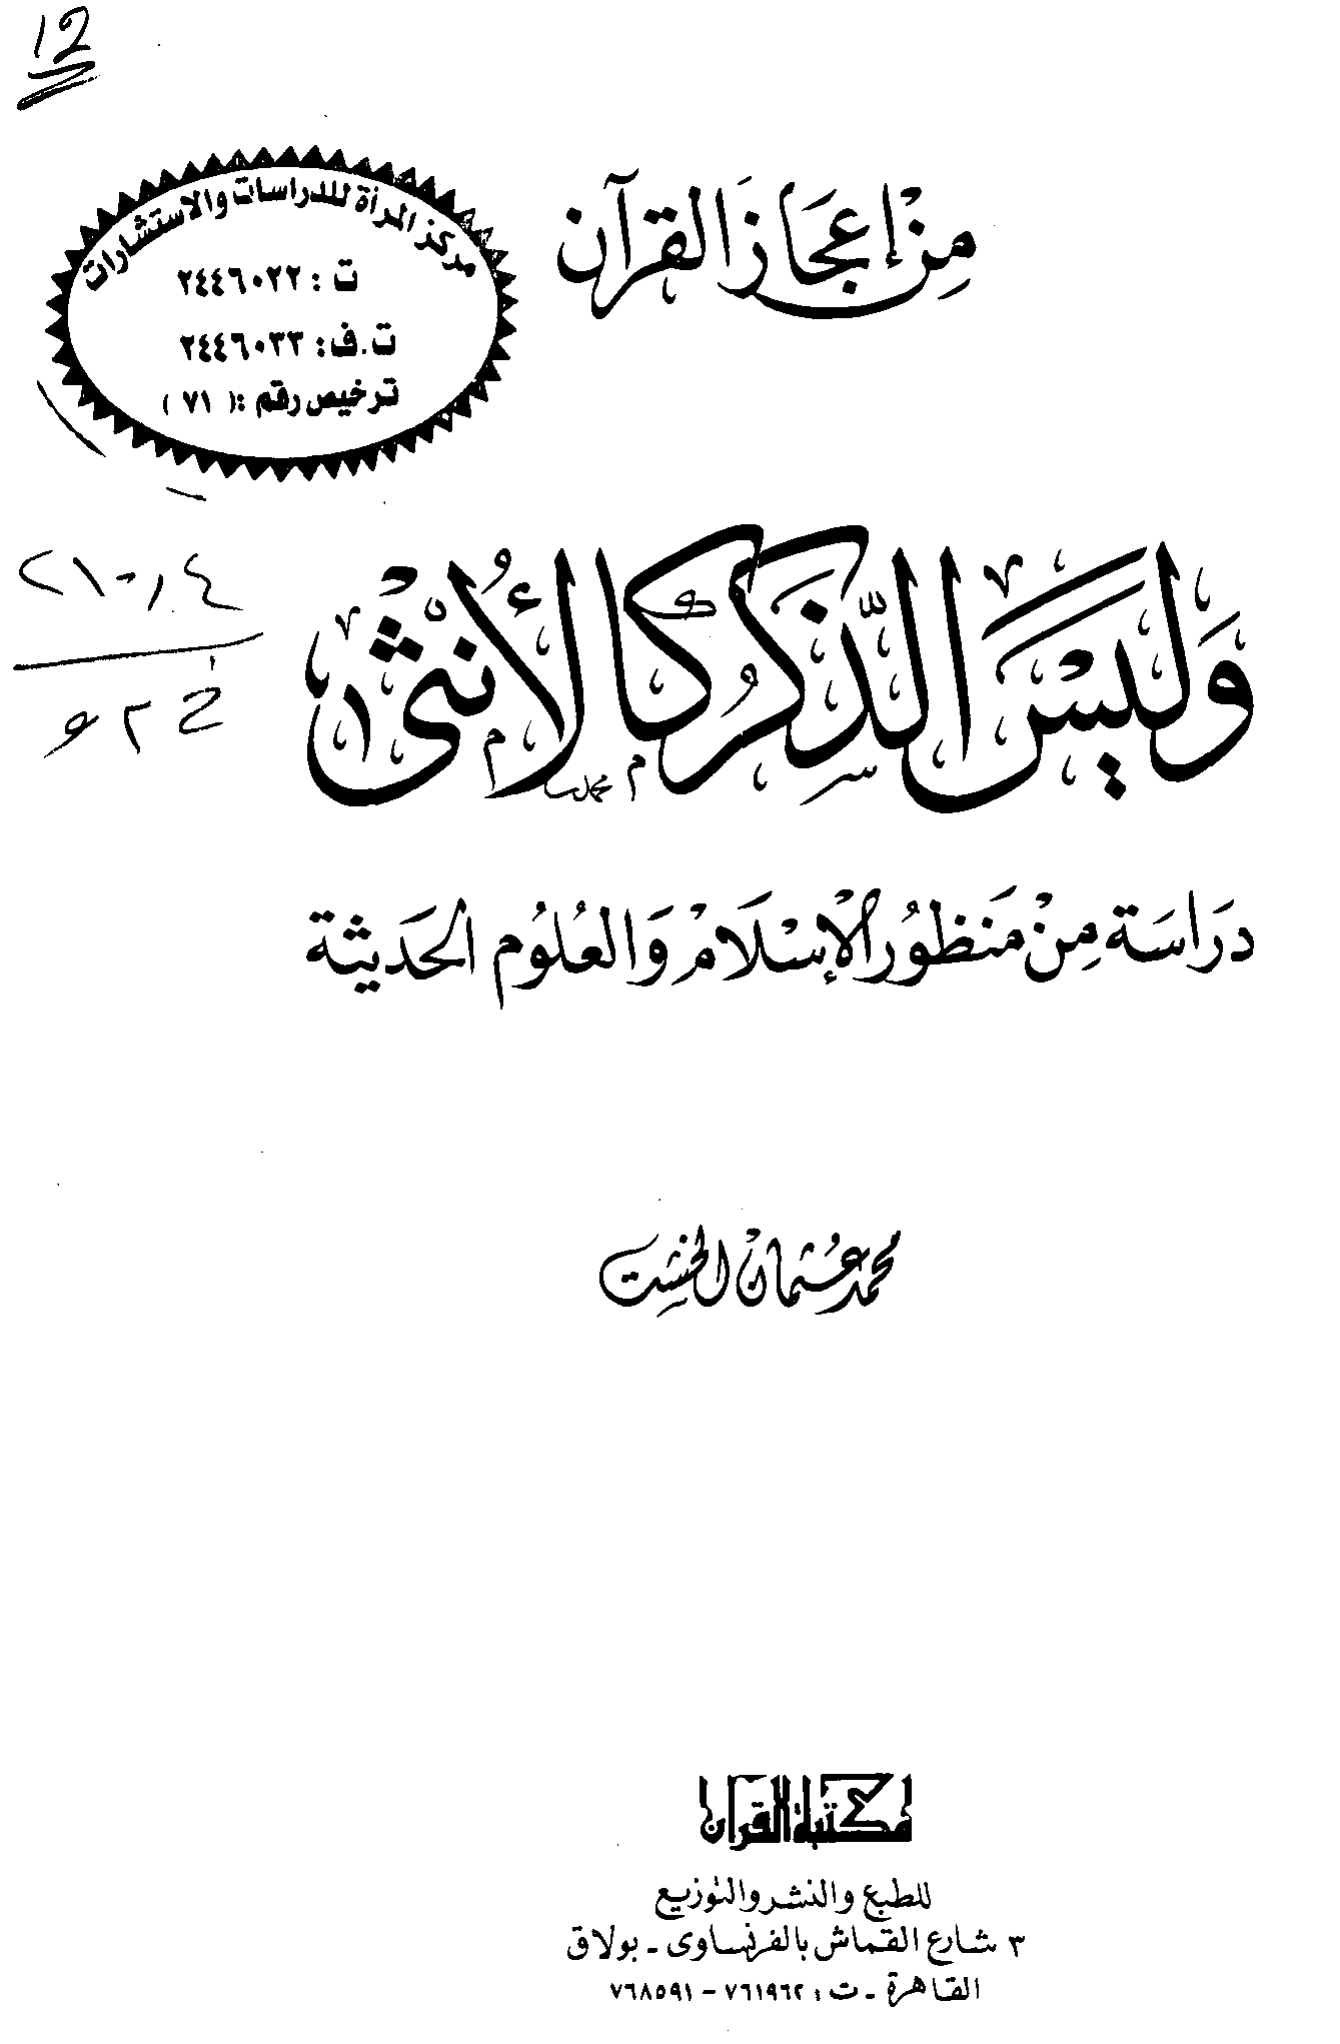 12
مركز المرأة للدراسات والاستشارات
ت : ٢٤٤٦٠٢٢
ت.ف: ٢٤٤٦٠٣٣
ترخيص رقم :( ٧١ )
مِنْ إعجَاز القرآن
وَلَيْسَ الذَّكَرُ كَالأُنْثَى
دَرَاسَة مِنْ مَنَظورُ الإسْلَامْ وَالعُلُوم الحَديثة
محمد عُثمان الخشت
مكتبة القرآن
للطبع والنشر والتوزيع
٣ شارع القماش بالفرنساوى - بولاق
القاهرة - ت : ٧٦١٩٦٢ - ٧٦٨٥٩١